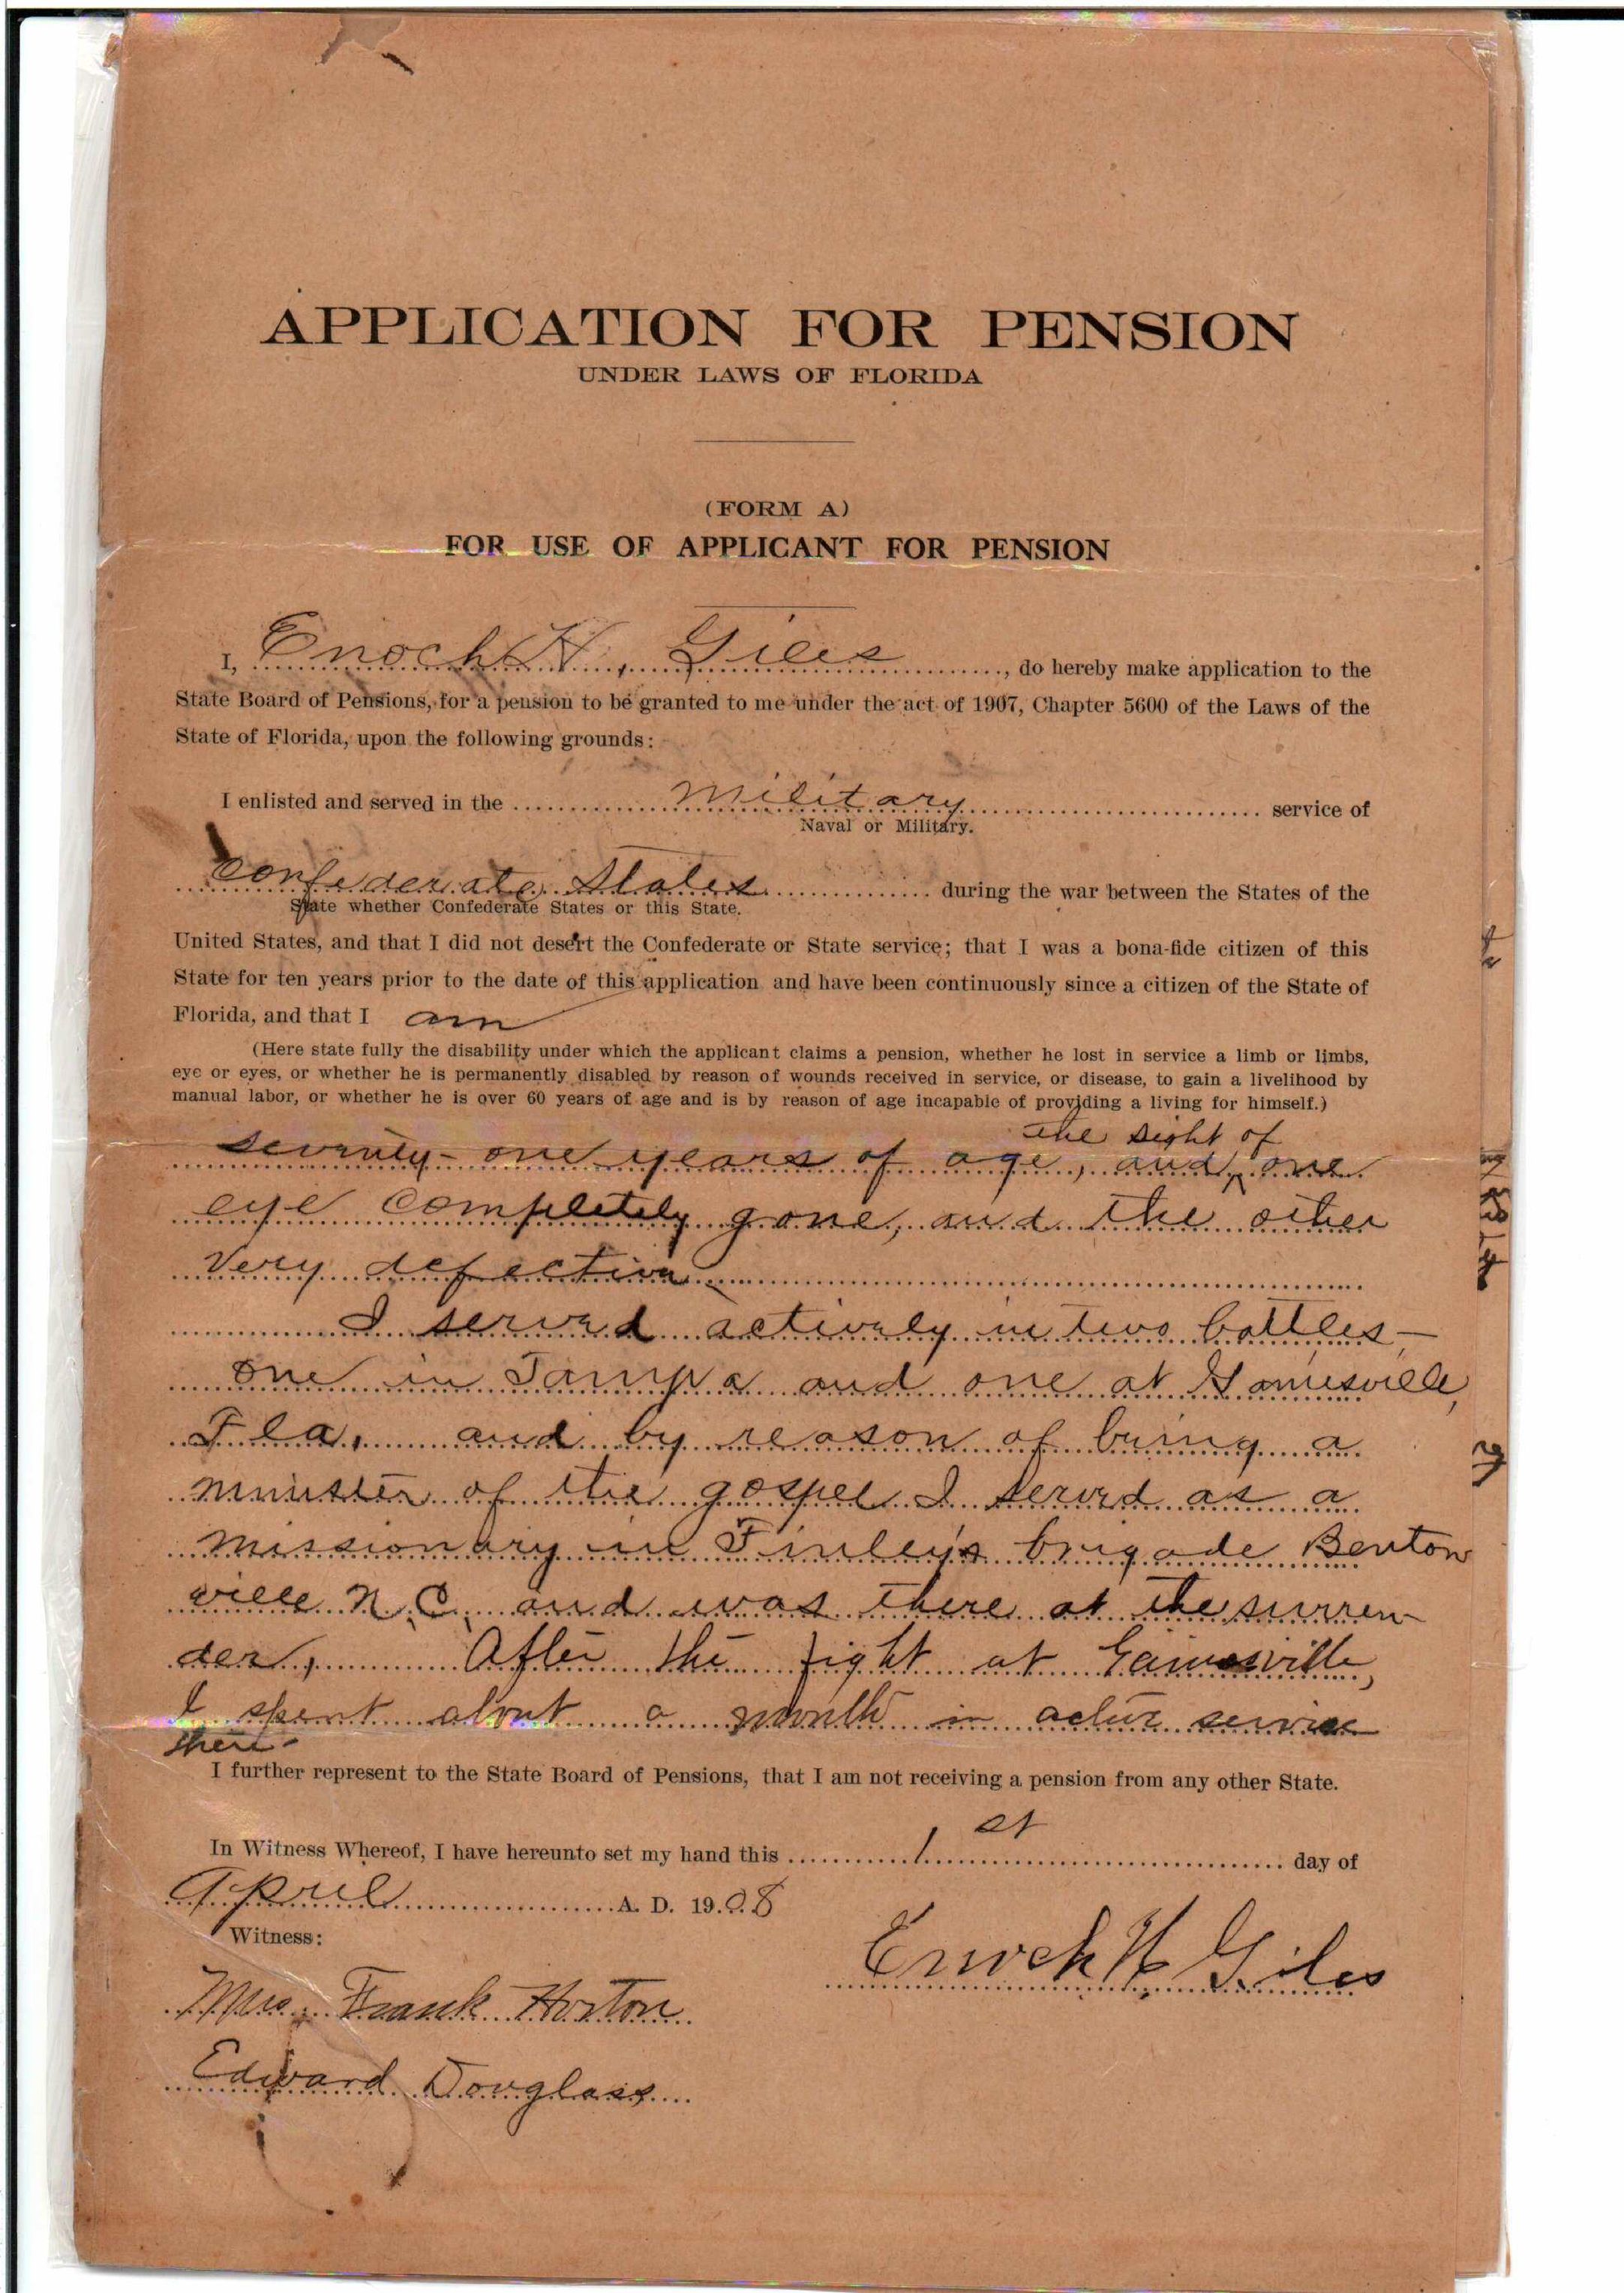 APPLICATION FOR PENSION
UNDER LAWS OF FLORIDA
(FORM A)
FOR USE OF APPLICANT FOR PENSION
I, Enoch H. Giles, do hereby make application to the
State Board of Pensions, for a pension to be granted to me under the act of 1907, Chapter 5600 of the Laws of the
State of Florida, upon the following grounds:
I enlisted and served in the military service of
Naval or Military.
Confederate States during the war between the States of the
State whether Confederate States or this State.
United States, and that I did not desert the Confederate or State service; that I was a bona-fide citizen of this
State for ten years prior to the date of this application and have been continuously since a citizen of the State of
Florida, and that I am
(Here state fully the disability under which the applicant claims a pension, whether he lost in service a limb or limbs,
eye or eyes, or whether he is permanently disabled by reason of wounds received in service, or disease, to gain a livelihood by
manual labor, or whether he is over 60 years of age and is by reason of age incapable of providing a living for himself.)
the sight of
seventy-one years of age, and one
eye completely gone, and the other
very defective
I served actively in two battles—
one in Tampa and one at Gainesville,
Fla, and by reason of being a
minister of the gospel I served as a
missionary in Finley's brigade Benton
ville N.C. and was there at the surren-
der, After the fight at Gainesville,
I spent about a month in active service
there-
I further represent to the State Board of Pensions, that I am not receiving a pension from any other State.
In Witness Whereof, I have hereunto set my hand this 1st day of
April A. D. 1908
Witness:
Enoch H Giles
Mrs. Frank Horton
Edward Douglass